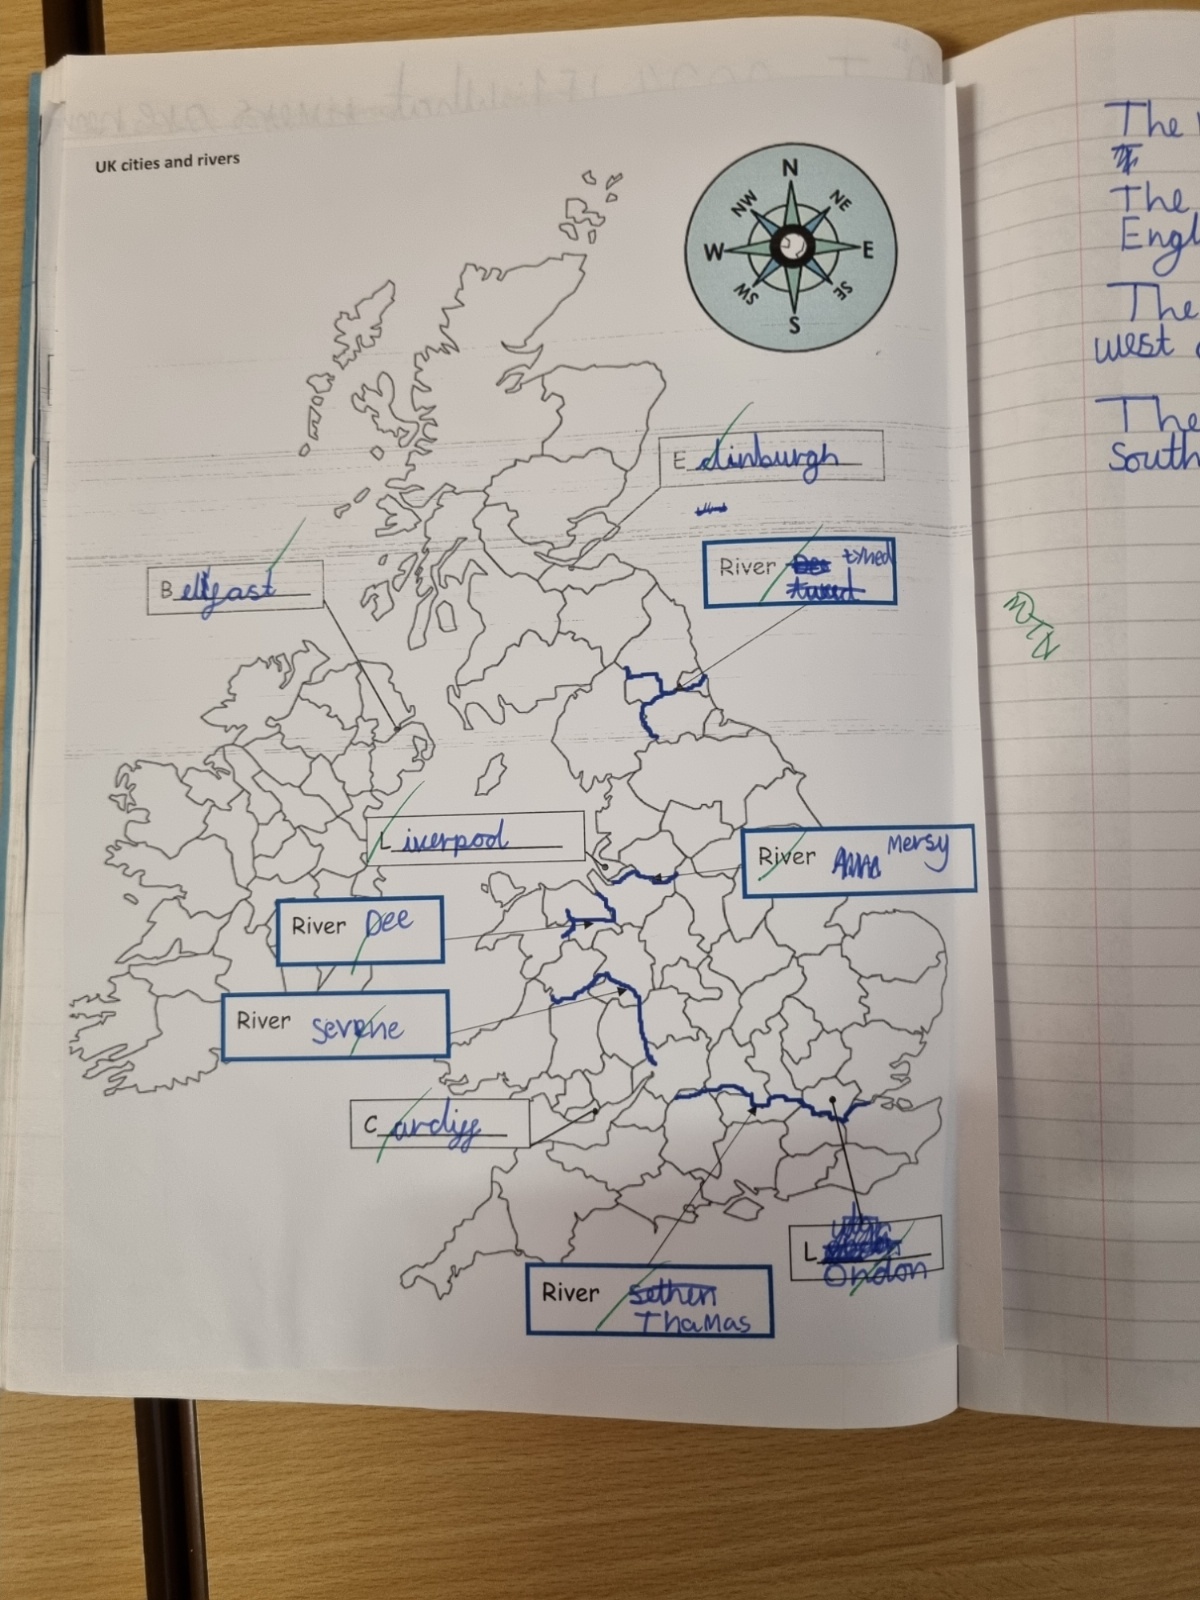 UK cities and rivers
N
NW
NE
W
E
SW
SE
S
Edinburgh
River tyned
tweed
Belfast
Liverpool
River Mersy
River Dee
River severne
Cardiff
London
River sethern
Thamas
The
The
Engl
The
west
The
South